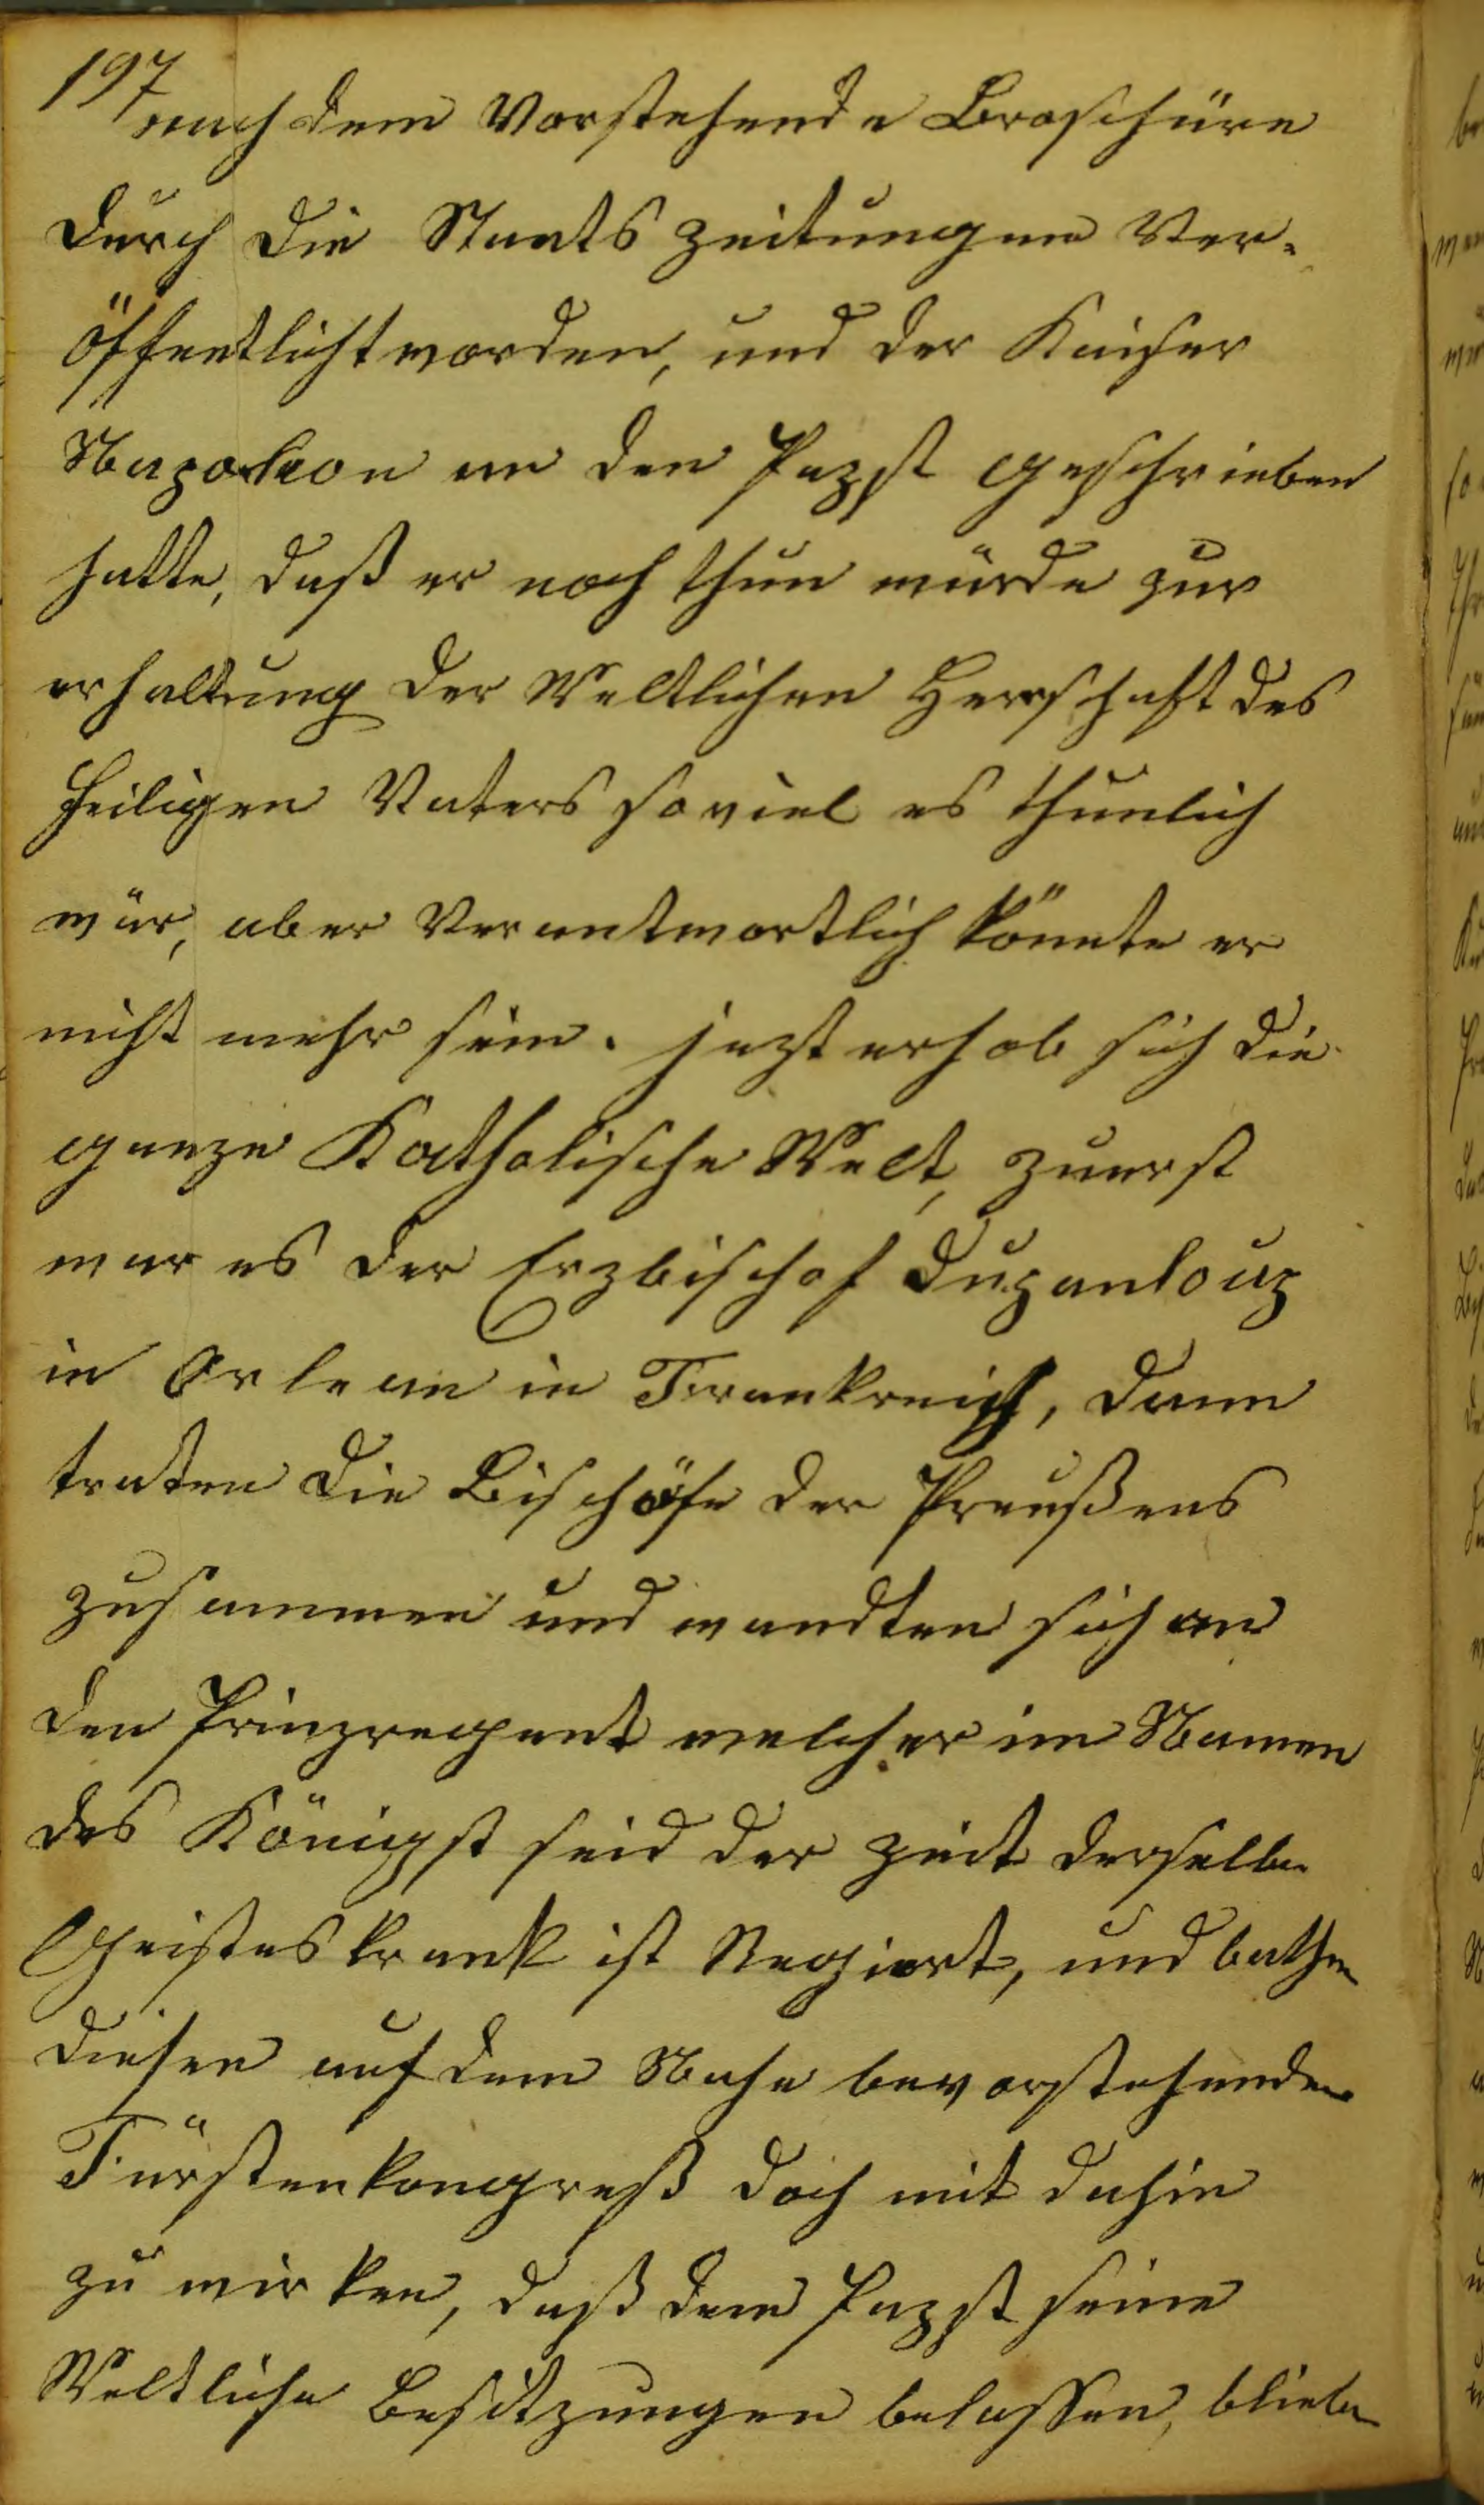 197
nach dem Vorstehende Broschüre
durch die Staats Zeitungen Ver-
öffentlicht worden, und der Kaiser
Napoleon an den Papst geschrieben
hatte, daß er noch thun würde zur
erhaltung der Weltlichen Herrschaft des
heiligen Vaters so viel es thunlich
wär, aber Verantwortlich könnte er
nicht mehr sein. jezt erhob sich die
ganze Katholische Welt, zuerst
war es der Erzbischof Dupanloup
in Orlean in Frankreich, dann
traten die Bischöfe der Preußens
zusammen und wandten sich an
den Prinzregent welcher im Namen
des Königst seid der Zeit derselbe
Geisteskrank ist Regiert, und bathen
diesen auf dem Nahe bevorstehenden
Fürstenkongreß doch mit dahin
zu wirken, daß dem Papst seine
Weltliche Besitzungen belassen, blieben